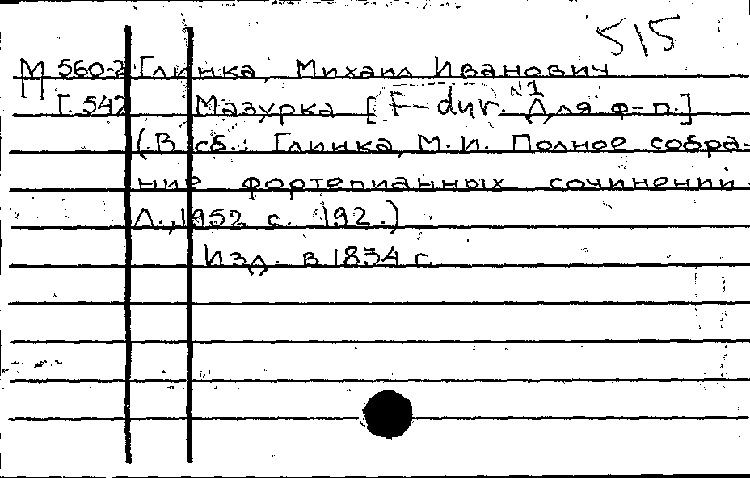 515
М 560-2 Глинка, Михаил Иванович
Г 542 Мазурка [F-dur. №1 Для ф-п.]
(В сб.: Глинка, М.И. Полное собра-
ние фортепианных сочинений.
Л., 1952 с. 192.)
Изд. в 1834 г.